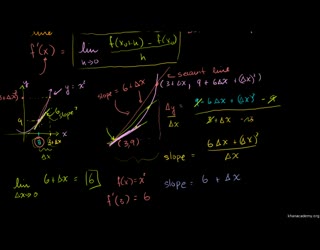 f'(x) = lim h→0 f(x₀+h) - f(x₀) / h
y
y = x²
slope
9
3
3+Δx
x
Δx
slope = 6+Δx
secant line
(3+Δx, 9+6Δx+(Δx)²)
(3,9)
Δy/Δx = 9+6Δx+(Δx)² - 9 / 3+Δx - 3
slope = 6Δx+(Δx)² / Δx
slope = 6 + Δx
lim Δx→0 6+Δx = 6
f(x) = x²
f'(3) = 6
khanacademy.org